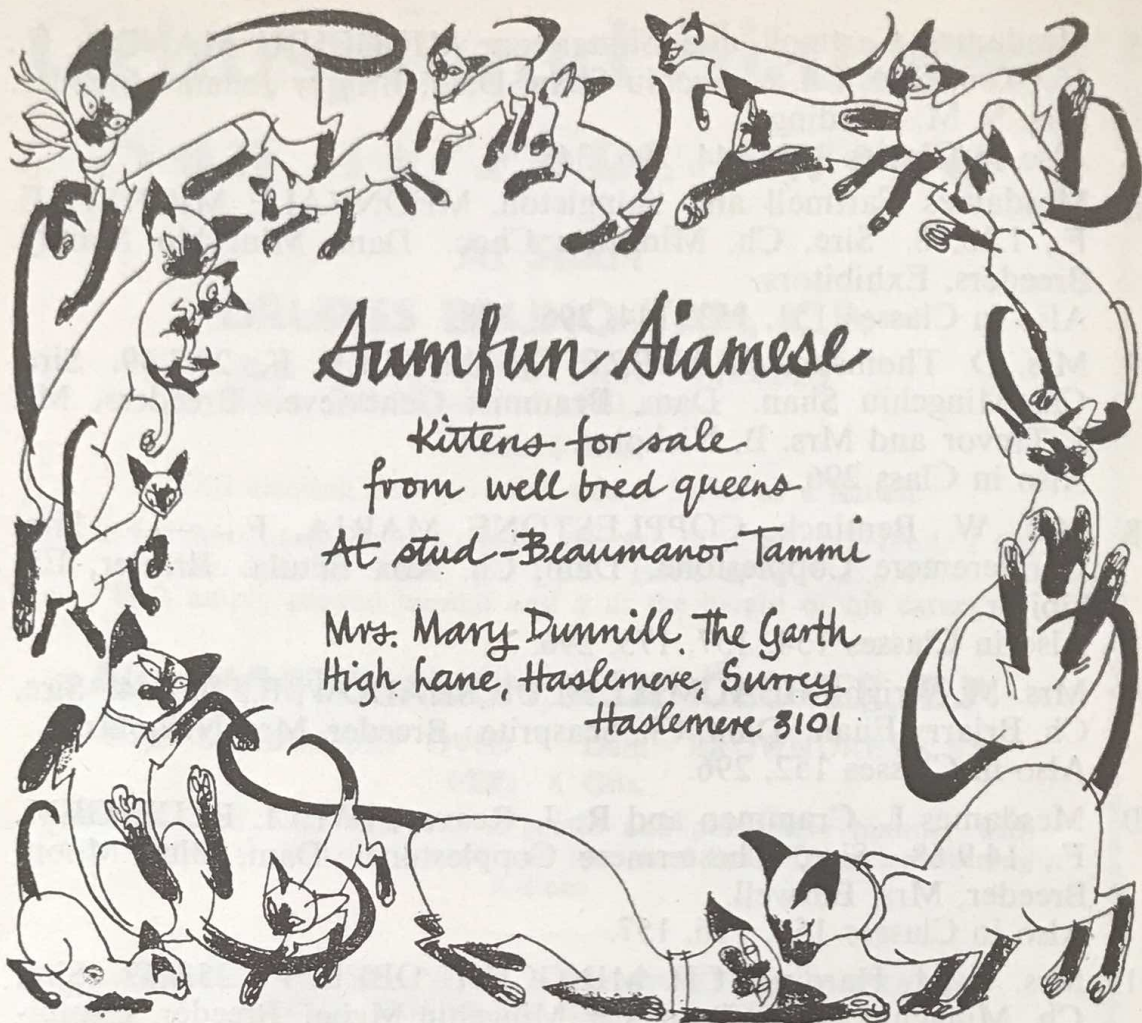 Sumfun Siamese
Kittens for sale
from well bred queens
At stud - Beaumanor Tammi
Mrs. Mary Dunnill. The Garth
High Lane, Haslemere, Surrey
Haslemere 3101